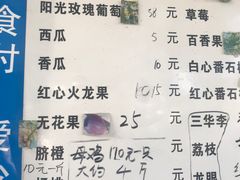 食
阳光玫瑰葡萄 58 元 草莓
西瓜 元 百香果
香瓜 元 白心番石
红心火龙果 10/15 元 红心番石
无花果 25 元 三华李
脐橙 母鸡170元一只 荔枝
10元一斤 大约4斤 龙眼